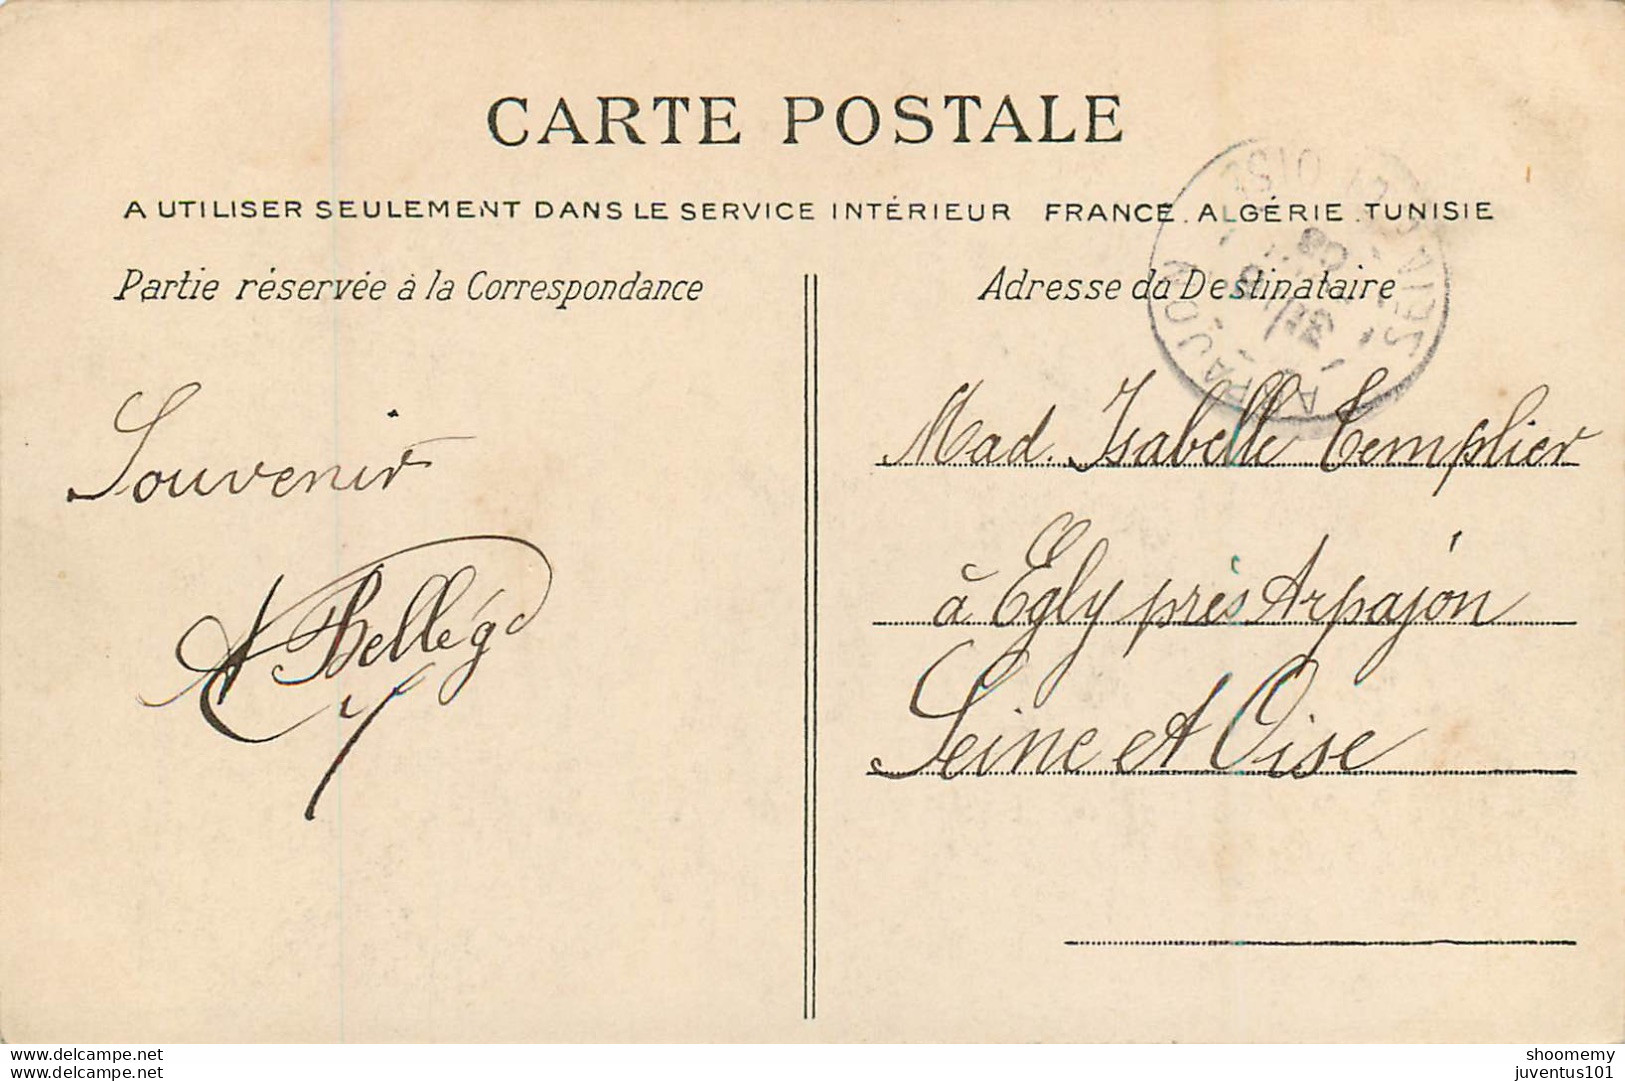 CARTE POSTALE
A UTILISER SEULEMENT DANS LE SERVICE INTÉRIEUR FRANCE. ALGÉRIE. TUNISIE
Partie réservée à la Correspondance
Adresse du Destinataire
ARPAJON
Souvenir
Mad. Isabelle Templier
à Egly près Arpajon
Seine et Oise
www.delcampe.net
www.delcampe.net
shoomemy
juventus101